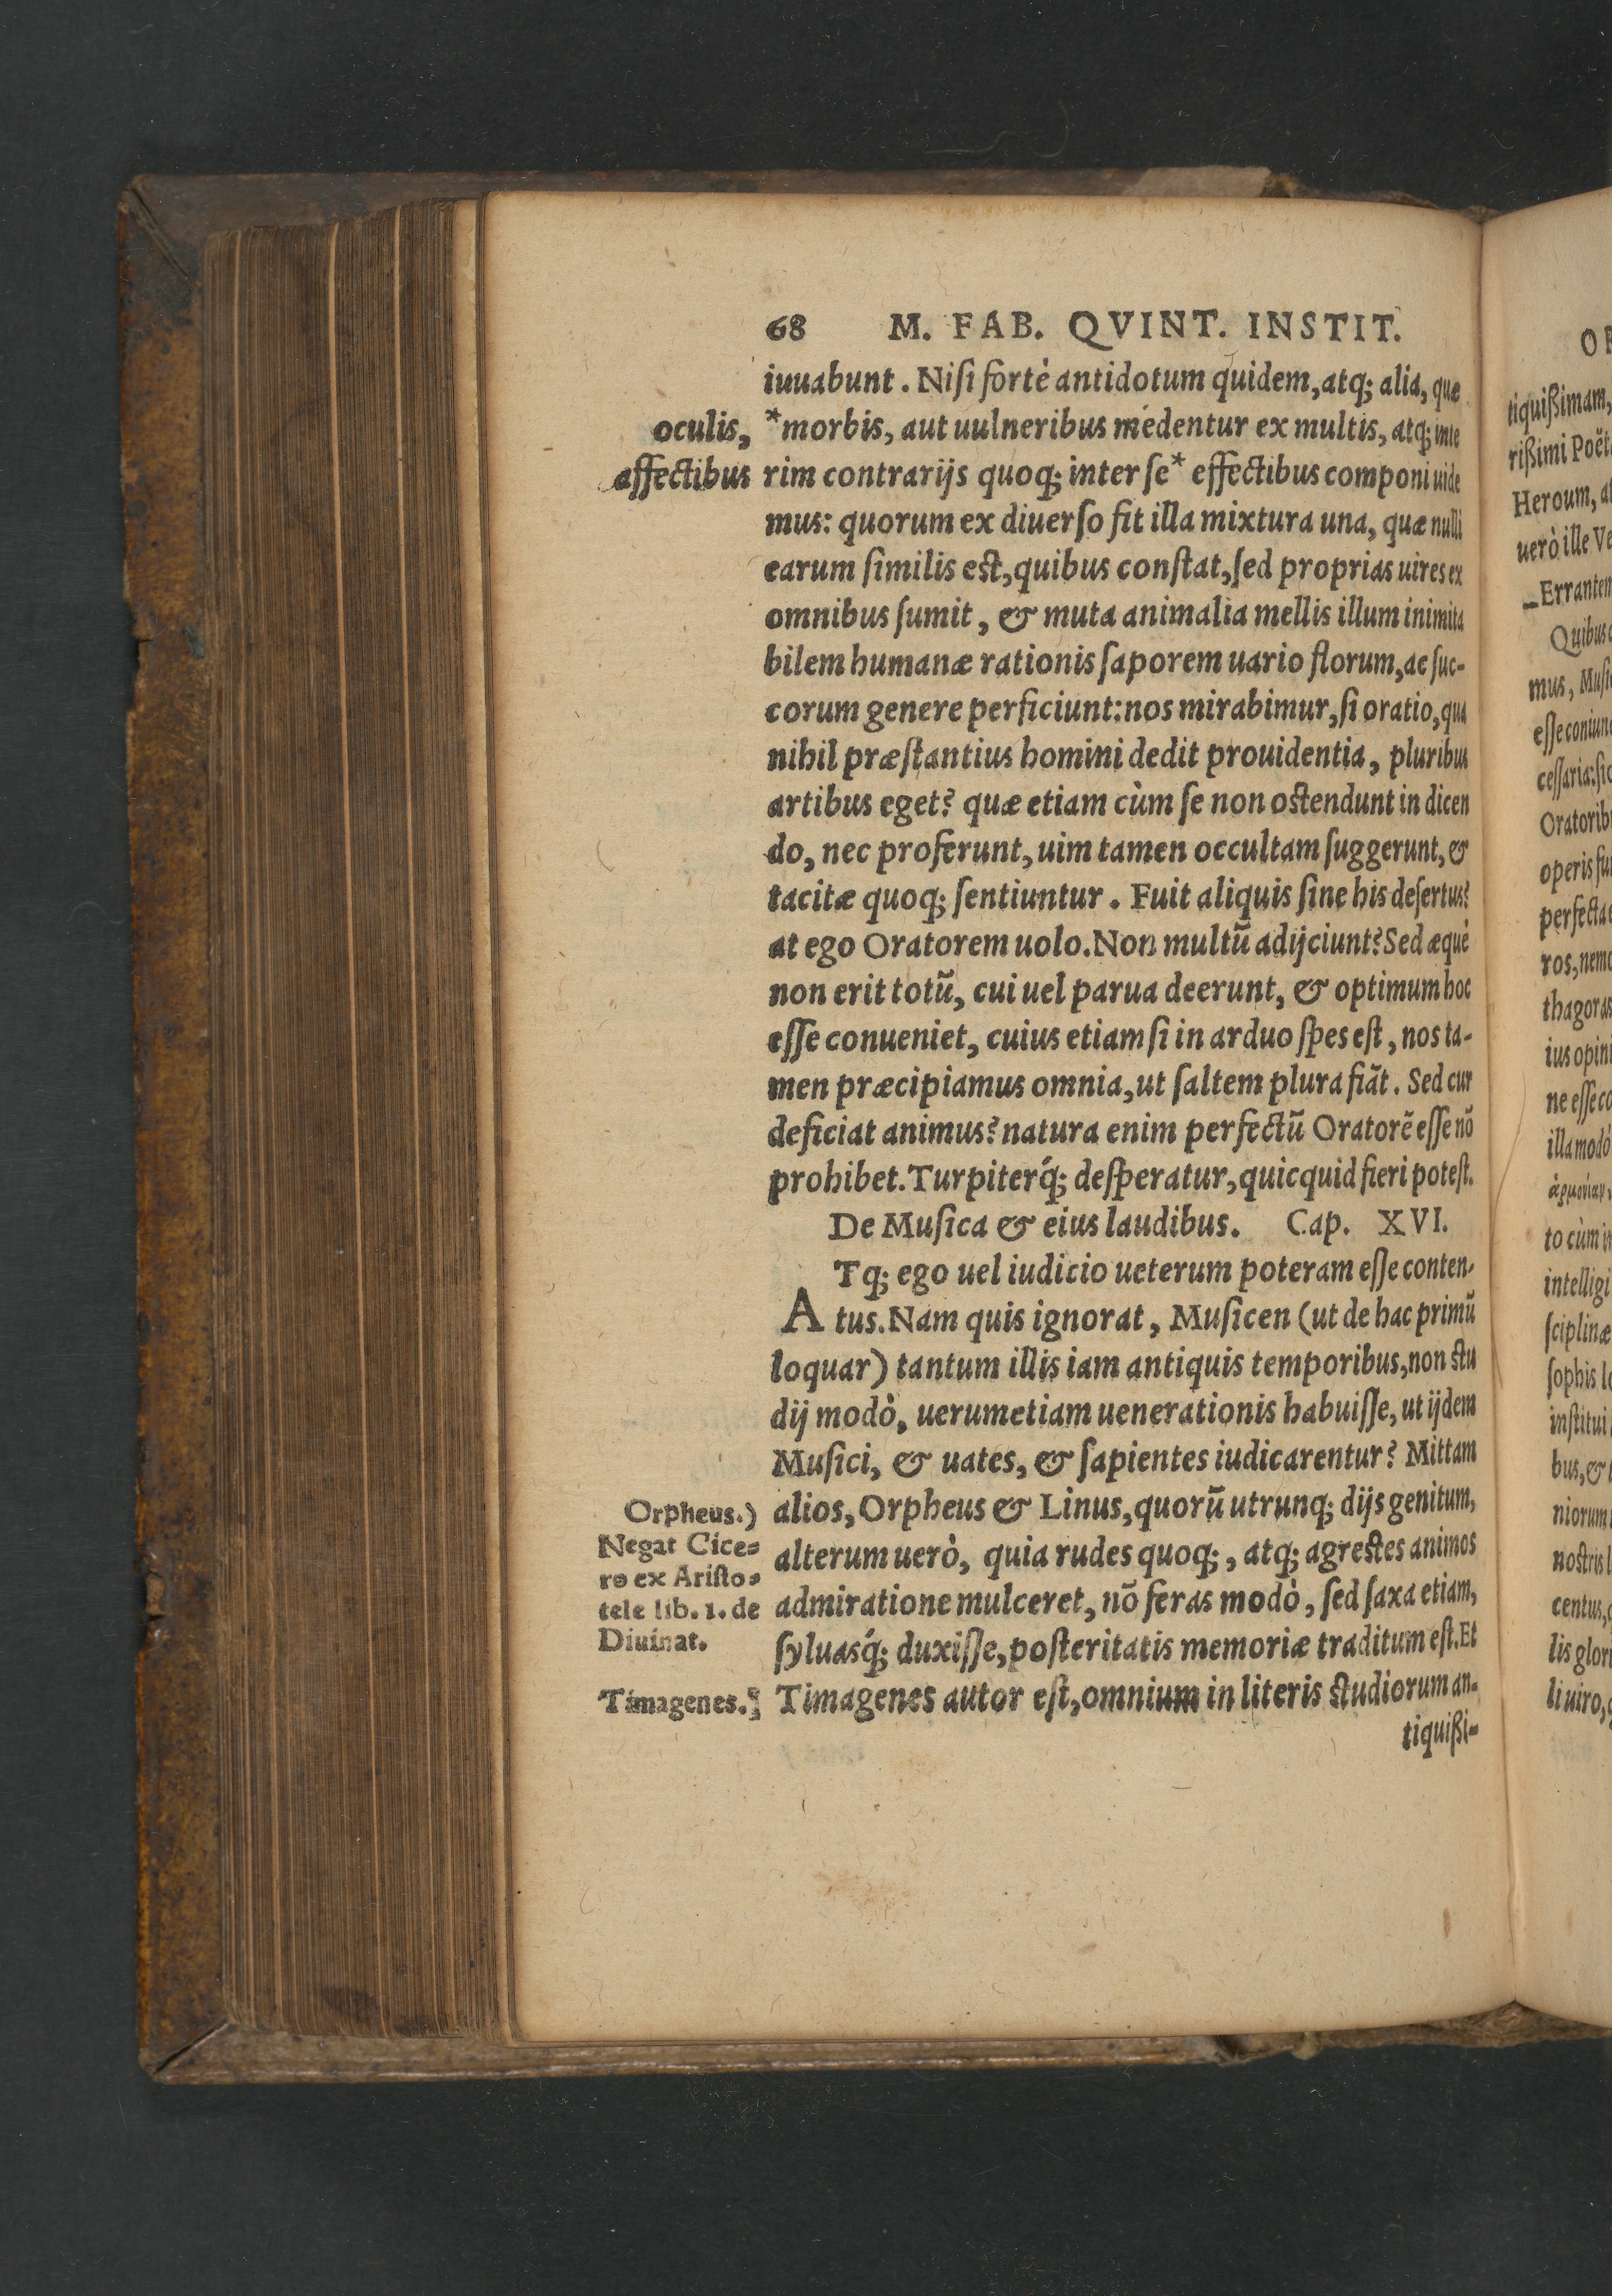 68 M. FAB. QVINT. INSTIT.
iuuabunt. Niſi fortè antidotum quidem, atq; alia, quæ
oculis, *morbis, aut uulneribus medentur ex multis, atq; inte
affectibus rim contrarijs quoq; inter ſe* effectibus componi uide
mus: quorum ex diuerſo fit illa mixtura una, quæ nulli
earum ſimilis eſt, quibus conſtat, ſed proprias uires ex
omnibus ſumit, & muta animalia mellis illum inimita
bilem humanæ rationis ſaporem uario florum, ac ſuc-
corum genere perficiunt: nos mirabimur, ſi oratio, qua
nihil præſtantius homini dedit prouidentia, pluribus
artibus eget? quæ etiam cùm ſe non oſtendunt in dicen
do, nec proferunt, uim tamen occultam ſuggerunt, &
tacitæ quoq; ſentiuntur. Fuit aliquis ſine his deſertus?
at ego Oratorem uolo. Non multũ adijciunt? Sed æquè
non erit totũ, cui uel parua deerunt, & optimum hoc
eſſe conueniet, cuius etiam ſi in arduo ſpes eſt, nos ta-
men præcipiamus omnia, ut ſaltem plura fiãt. Sed cur
deficiat animus? natura enim perfectũ Oratorẽ eſſe nõ
prohibet. Turpiterq́; deſperatur, quicquid fieri poteſt.
De Muſica & eius laudibus. Cap. XVI.
Tq; ego uel iudicio ueterum poteram eſſe conten-
A tus. Nam quis ignorat, Muſicen (ut de hac primũ
loquar) tantum illis iam antiquis temporibus, non ſtu
dij modò, uerumetiam uenerationis habuiſſe, ut ijdem
Muſici, & uates, & ſapientes iudicarentur? Mittam
alios, Orpheus & Linus, quorũ utrunq; dijs genitum,
alterum uerò, quia rudes quoq;, atq; agreſtes animos
admiratione mulceret, nõ feras modò, ſed ſaxa etiam,
ſyluasq́; duxiſſe, poſteritatis memoriæ traditum eſt. Et
Timagenes autor eſt, omnium in literis ſtudiorum an-
tiquißi-
Orpheus.)
Negat Cice-
ro ex Ariſto-
tele lib. 1. de
Diuinat.
Timagenes.)
O
tiquißimam,
rißimi Poët
Heroum, at
uerò ille Ve
Errantem
Quibus
mus, Muſi
eſſe coniun
ceſſaria: ſic
Oratorib
operis fu
perfecta
ros, nemo
thagoras
ius opin
ne eſſe co
illa modò
ἁρμονίαν,
to cùm in
intelligi
ſciplinæ
ſophis lo
inſtitui
bus, &
niorum
noſtris l
centus,
lis glori
li uiro,